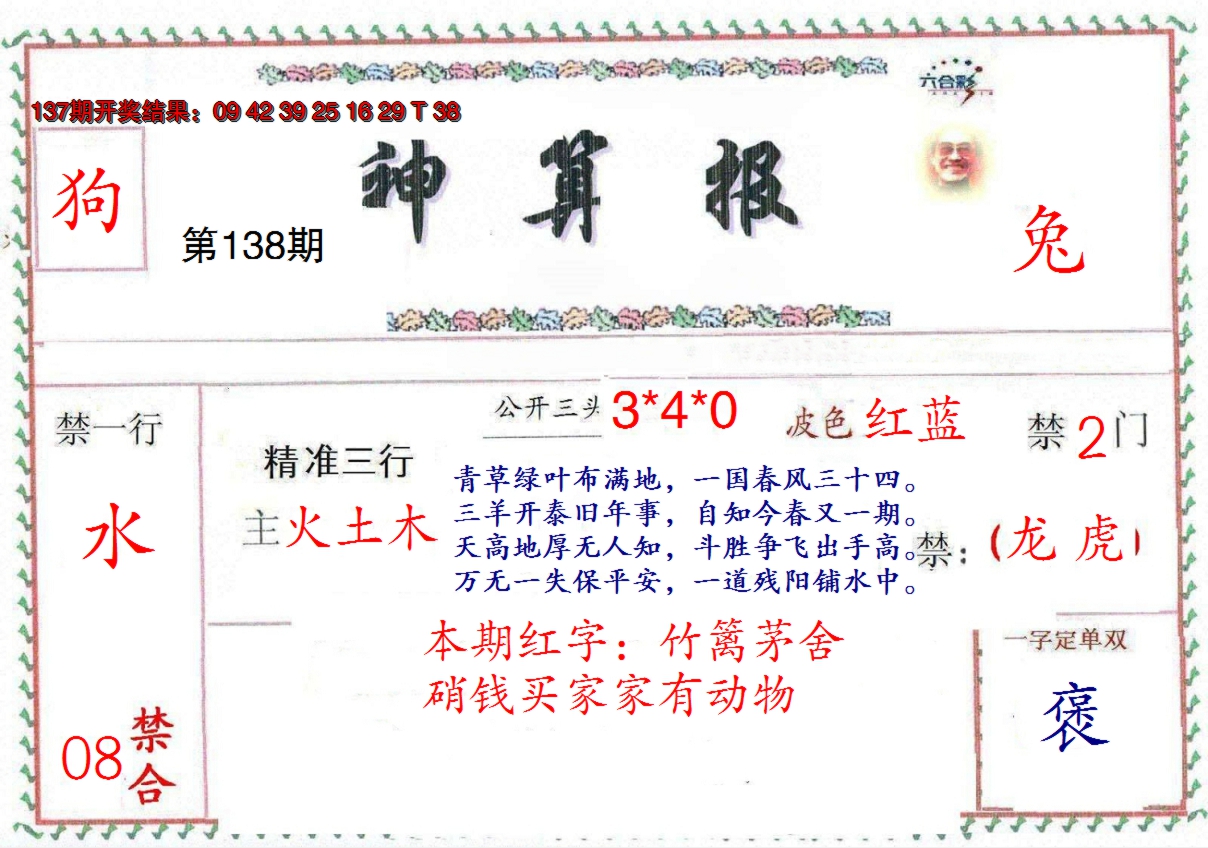 六合彩
137期开奖结果：09 42 39 25 16 29 T 38
神算报
狗
第138期
兔
禁一行
水
08
禁合
公开三头 3*4*0
波色 红蓝
禁 2 门
精准三行
主 火土木
青草绿叶布满地，一国春风三十四。
三羊开泰旧年事，自知今春又一期。
天高地厚无人知，斗胜争飞出手高。
万无一失保平安，一道残阳铺水中。
禁：（龙 虎）
本期红字：竹篱茅舍
硝钱买家家有动物
一字定单双
褒